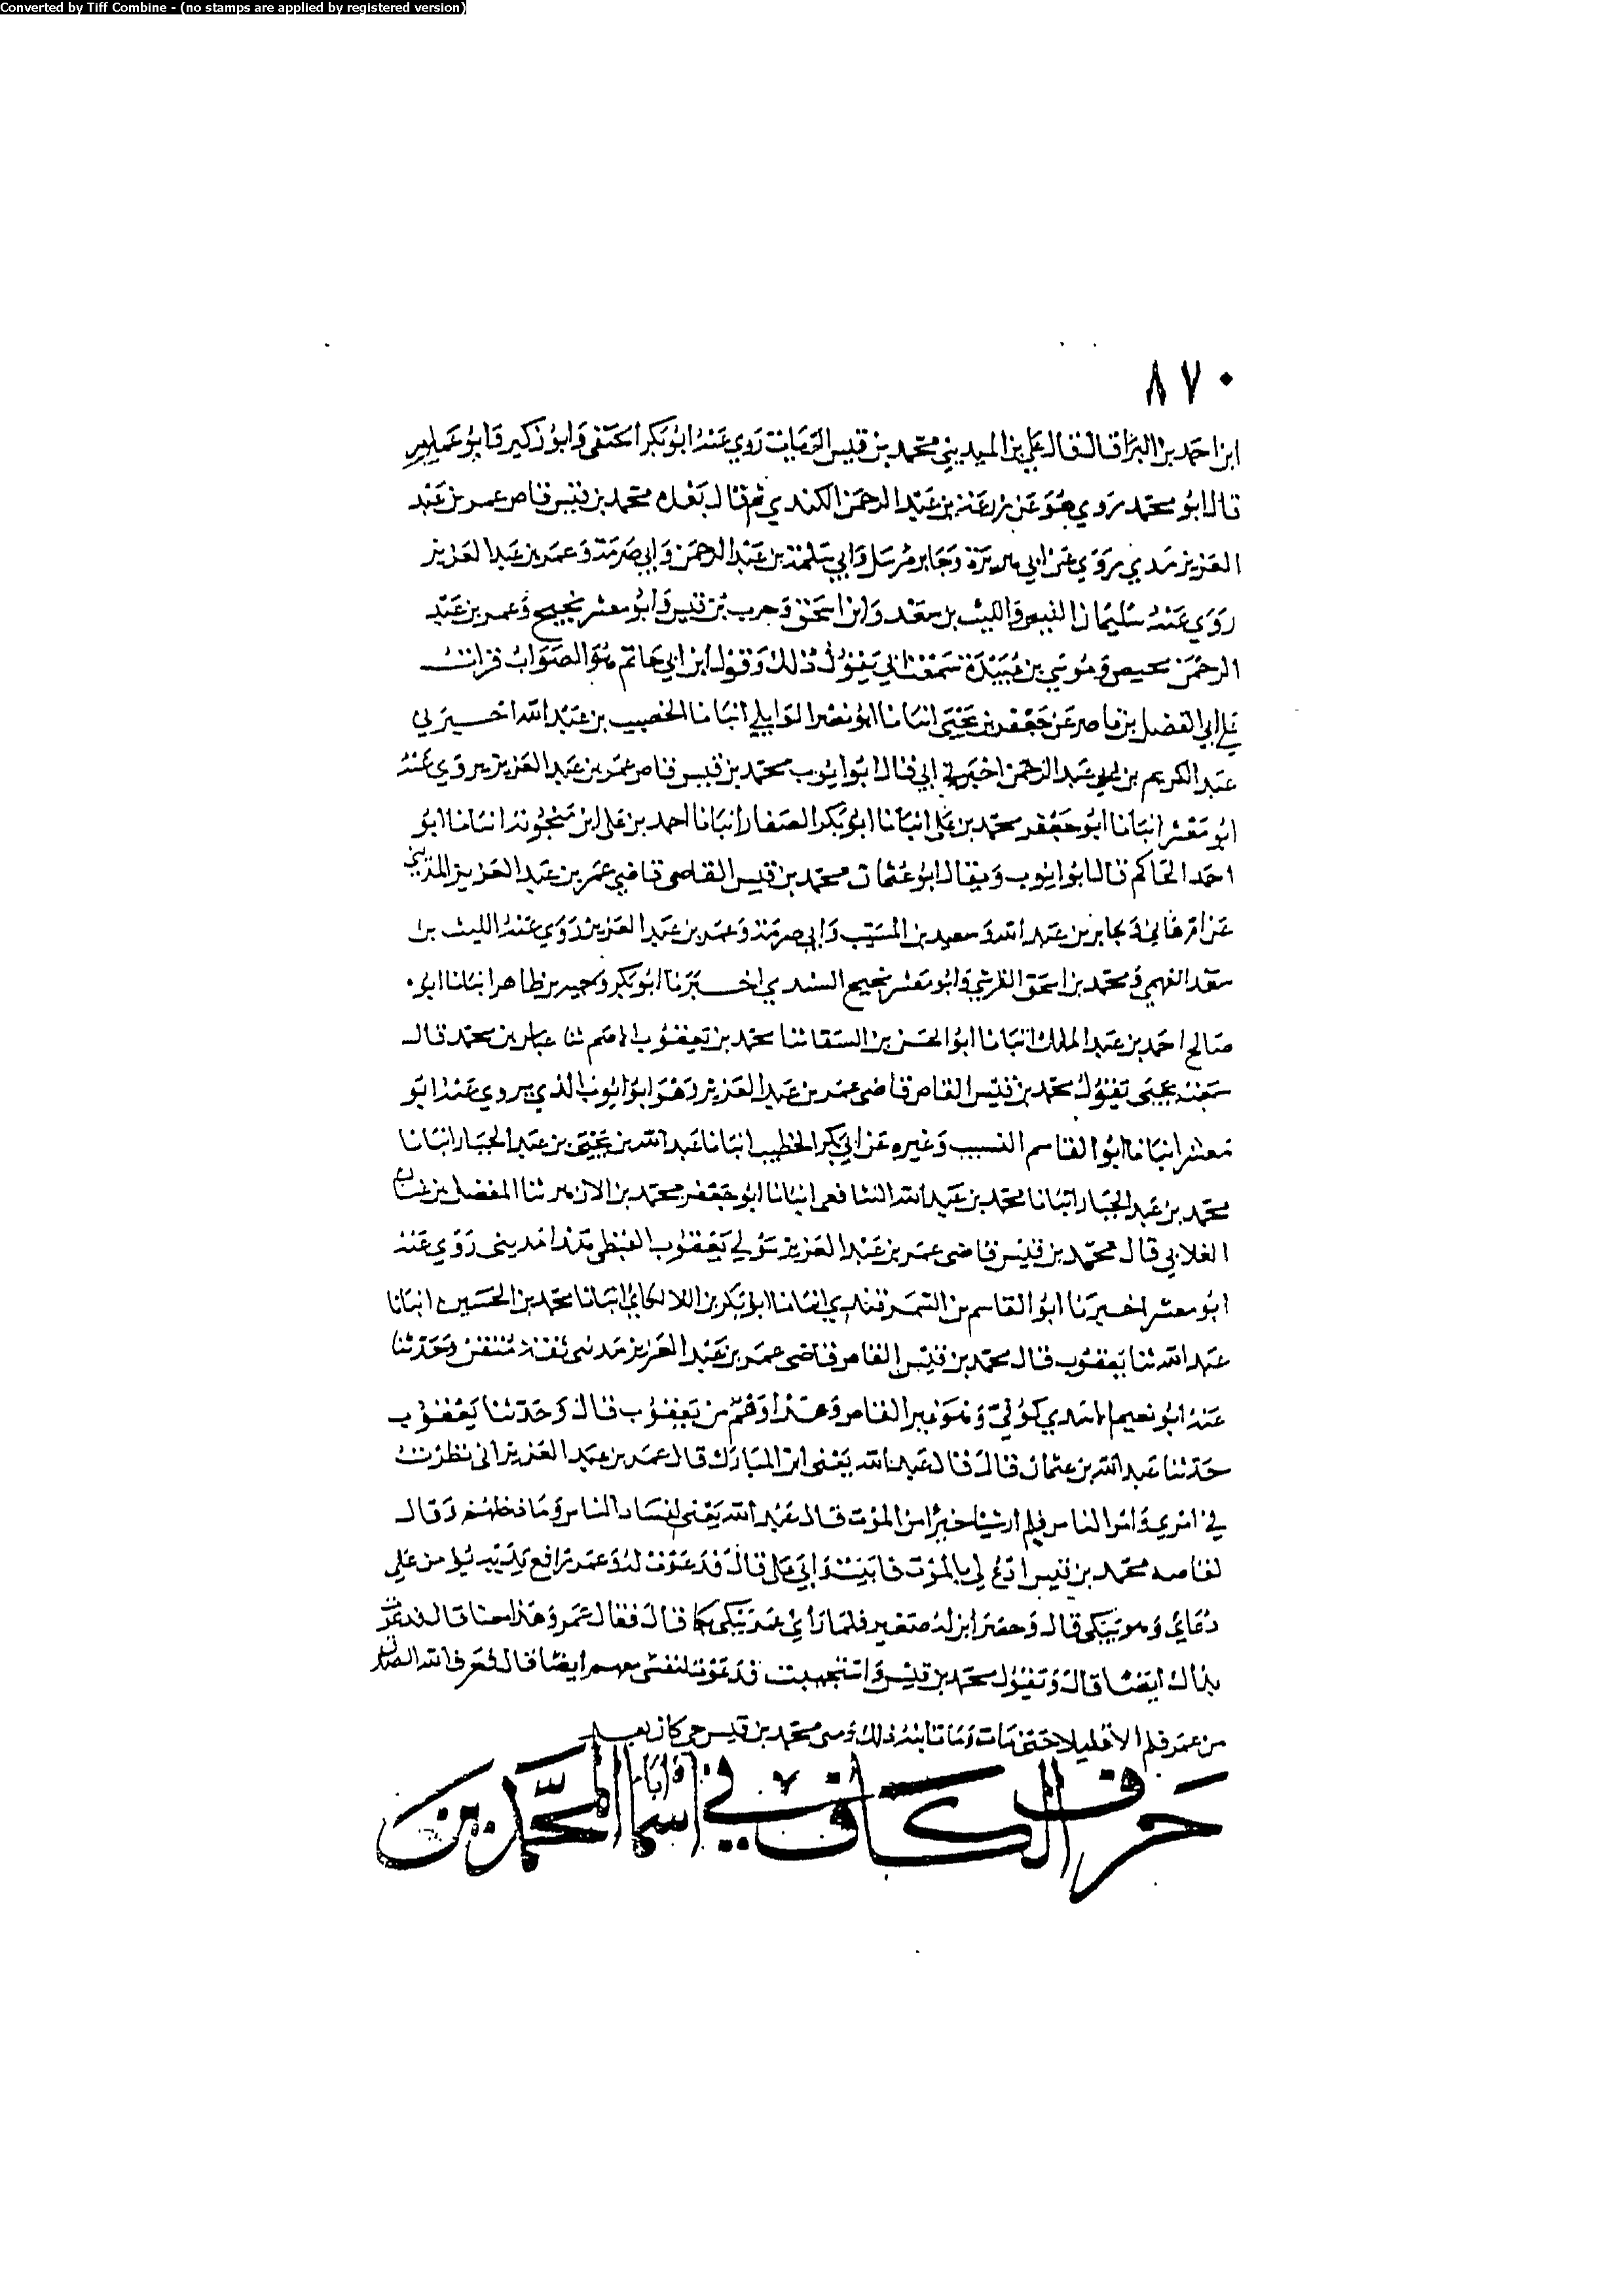 Converted by Tiff Combine - (no stamps are applied by registered version)
٨٧٠
ابن احمد بن البرا قال قال علي بن المديني محمد بن قيس الزيات روي عنه ابو بكر الحنفي وابو زكير وابو عامر
قال ابو محمد روي هو عن زرعة بن عبد الرحمن الكندي ثم قال بعده محمد بن قيس قاص عمر بن عبد
العزيز مدني روي عن ابي هريرة وجابر مرسل وابي سلمة بن عبد الرحمن وابي صرمة وعمر بن عبد العزيز
روي عنه سليمان التيمي والليث بن سعد وابن اسحق وحرب بن قيس وابو معشر نجيح وعمر بن عبد
الرحمن محيصن وموسي بن عبيدة سمعت ابي يقول ذلك وقول ابن ابي حاتم هو الصواب قرات
علي ابي الفضل بن ناصر عن جعفر بن يحيى انبانا ابو نصر الوايلي انبانا الخصيب بن عبد الله اخبرني
عبد الكريم بن ابي عبد الرحمن اخبرني ابي قال ابو ايوب محمد بن قيس قاص عمر بن عبد العزيز يروي عنه
ابو معشر انبانا ابو جعفر محمد بن علي انبانا ابو بكر الصفار انبانا احمد بن علي ابن منجويه انبانا ابو
احمد الحاكم قال ابو ايوب ويقال ابو عثمان محمد بن قيس القاصي قاضي عمر بن عبد العزيز المديني
عن ام هاني وجابر بن عبد الله وسعيد بن المسيب وابي صرمة وعمر بن عبد العزيز روي عنه الليث بن
سعد الفهمي ومحمد بن اسحق القرشي وابو معشر نجيح السندي اخبرنا ابو بكر وجيه بن طاهر انبانا ابو
صالح احمد بن عبد الملك انبانا ابو الحسن بن السقا ثنا محمد بن يعقوب الاصم ثنا عباس بن محمد قال
سمعت يحيى يقول محمد بن قيس القاص قاضي عمر بن عبد العزيز وهو ابو ايوب الذي يروي عنه ابو
معشر انبانا ابو القاسم النسيب وغيره عن ابي بكر الخطيب انبانا عبد الله بن يحيى بن عبد الجبار انبانا
محمد بن عبد الجبار انبانا محمد بن عبد الله الشافعي انبانا ابو جعفر محمد بن الازهر ثنا المفضل بن غسان
الغلابي قال محمد بن قيس قاضي عمر بن عبد العزيز مولي يعقوب القبطي هذا مديني روي عنه
ابو معشر اخبرنا ابو القاسم بن السمرقندي انبانا ابو بكر بن اللالكاي انبانا محمد بن الحسين انبانا
عبد الله ثنا يعقوب قال محمد بن قيس القاص قاضي عمر بن عبد العزيز مدني ثقة متقن وحدثنا
عنه ابو نعيم اسدي كوفي وهو غير القاص وهذا وهم من يعقوب قال وحدثنا يعقوب
حدثنا عبد الله بن عثمان قال قال عبد الله يعني ابن المبارك قال عمر بن عبد العزيز اني نظرت
في امري وامر الناس فلم ار شيئا خيرا من الموت قال عبد الله يعني لفساد الناس وما دخلهم وقال
لقاصه محمد بن قيس ادع لي بالموت فابيت وابي علي قال فدعوت له وعمر رافع يديه يؤمن علي
دعاي وهو يبكي قال وحضر ابن له صغير فلما راي عمر يبكي بكا قال فقال عمر وهذا معنا قال فدعوت
بذاك ايضا قال ويقول محمد بن قيس واستحييت فدعوت لنفسي معهم ايضا قال فعرف الله الصدق
من عمر فلم الا قليلا حتى مات ومات ابنه ذلك محمد بن قيس
حرف الكاف في اسما اباء المحمدين